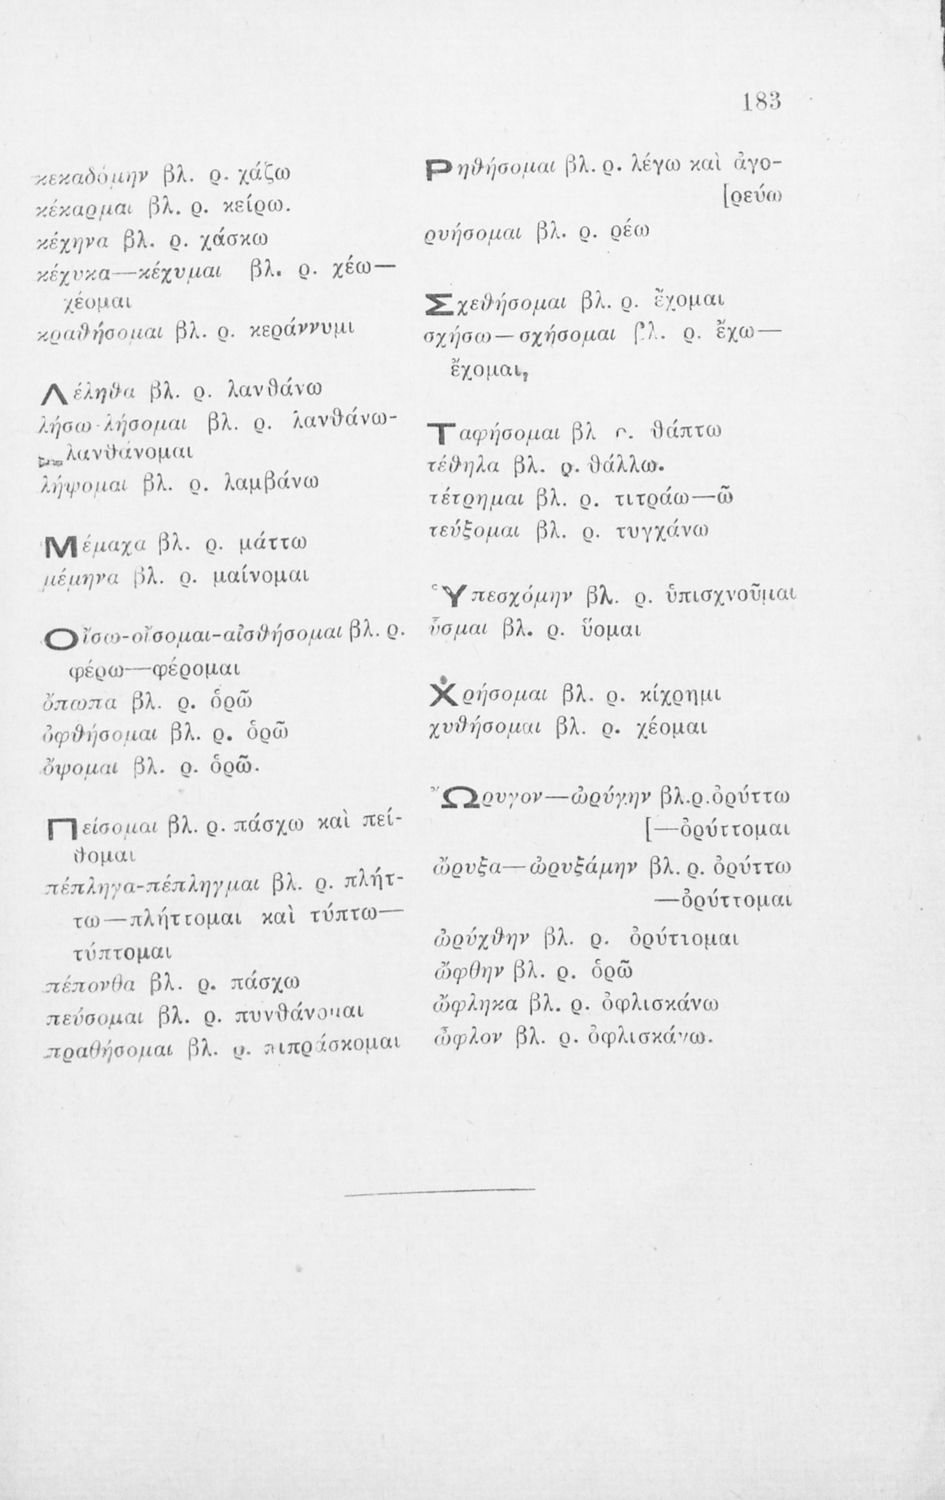 183
κεκαδόμην βλ. ρ. χάζω
κέκαρμαι βλ. ρ. κείρω.
κέχηνα βλ. ρ. χάσκω
κέχυκα—κέχυμαι βλ. ρ. χέω—
χέομαι
κραθήσομαι βλ. ρ. κεράννυμι
Λέληθα βλ. ρ. λανθάνω
λήσω-λήσομαι βλ. ρ. λανθάνω-
λανθάνομαι
λήψομαι βλ. ρ. λαμβάνω
Μέμαχα βλ. ρ. μάττω
μέμηνα βλ. ρ. μαίνομαι
Οἴσω-οἴσομαι-αἰσθήσομαι βλ. ρ.
φέρω—φέρομαι
ὄπωπα βλ. ρ. ὁρῶ
ὀφθήσομαι βλ. ρ. ὁρῶ
ὄψομαι βλ. ρ. ὁρῶ.
Πείσομαι βλ. ρ. πάσχω καὶ πεί-
θομαι
πέπληγα-πέπληγμαι βλ. ρ. πλήτ-
τω—πλήττομαι καὶ τύπτω—
τύπτομαι
πέπονθα βλ. ρ. πάσχω
πεύσομαι βλ. ρ. πυνθάνομαι
πραθήσομαι βλ. ρ. πιπράσκομαι
Ρηθήσομαι βλ. ρ. λέγω καὶ ἀγο-
[ρεύω
ρυήσομαι βλ. ρ. ρέω
Σχεθήσομαι βλ. ρ. ἔχομαι
σχήσω—σχήσομαι βλ. ρ. ἔχω—
ἔχομαι,
Ταφήσομαι βλ ρ. θάπτω
τέθηλα βλ. ρ. θάλλω.
τέτρημαι βλ. ρ. τιτράω—ῶ
τεύξομαι βλ. ρ. τυγχάνω
Ὑπεσχόμην βλ. ρ. ὑπισχνοῦμαι
ὗσμαι βλ. ρ. ὕομαι
Χρήσομαι βλ. ρ. κίχρημι
χυθήσομαι βλ. ρ. χέομαι
Ὤρυγον—ὠρύγην βλ.ρ.ὀρύττω
[—ὀρύττομαι
ὤρυξα—ὠρυξάμην βλ. ρ. ὀρύττω
—ὀρύττομαι
ὠρύχθην βλ. ρ. ὀρύττομαι
ὤφθην βλ. ρ. ὁρῶ
ὤφληκα βλ. ρ. ὀφλισκάνω
ὦφλον βλ. ρ. ὀφλισκάνω.